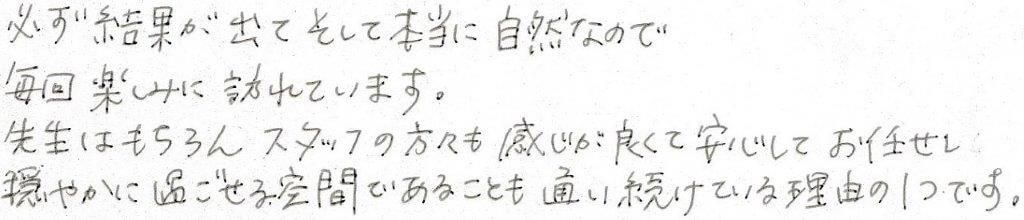 必ず結果が出てそして本当に自然なので
毎回楽しみに訪れています。
先生はもちろんスタッフの方々も感じが良くて安心してお任せし
穏やかに過ごせる空間であることも通い続けている理由の1つです。